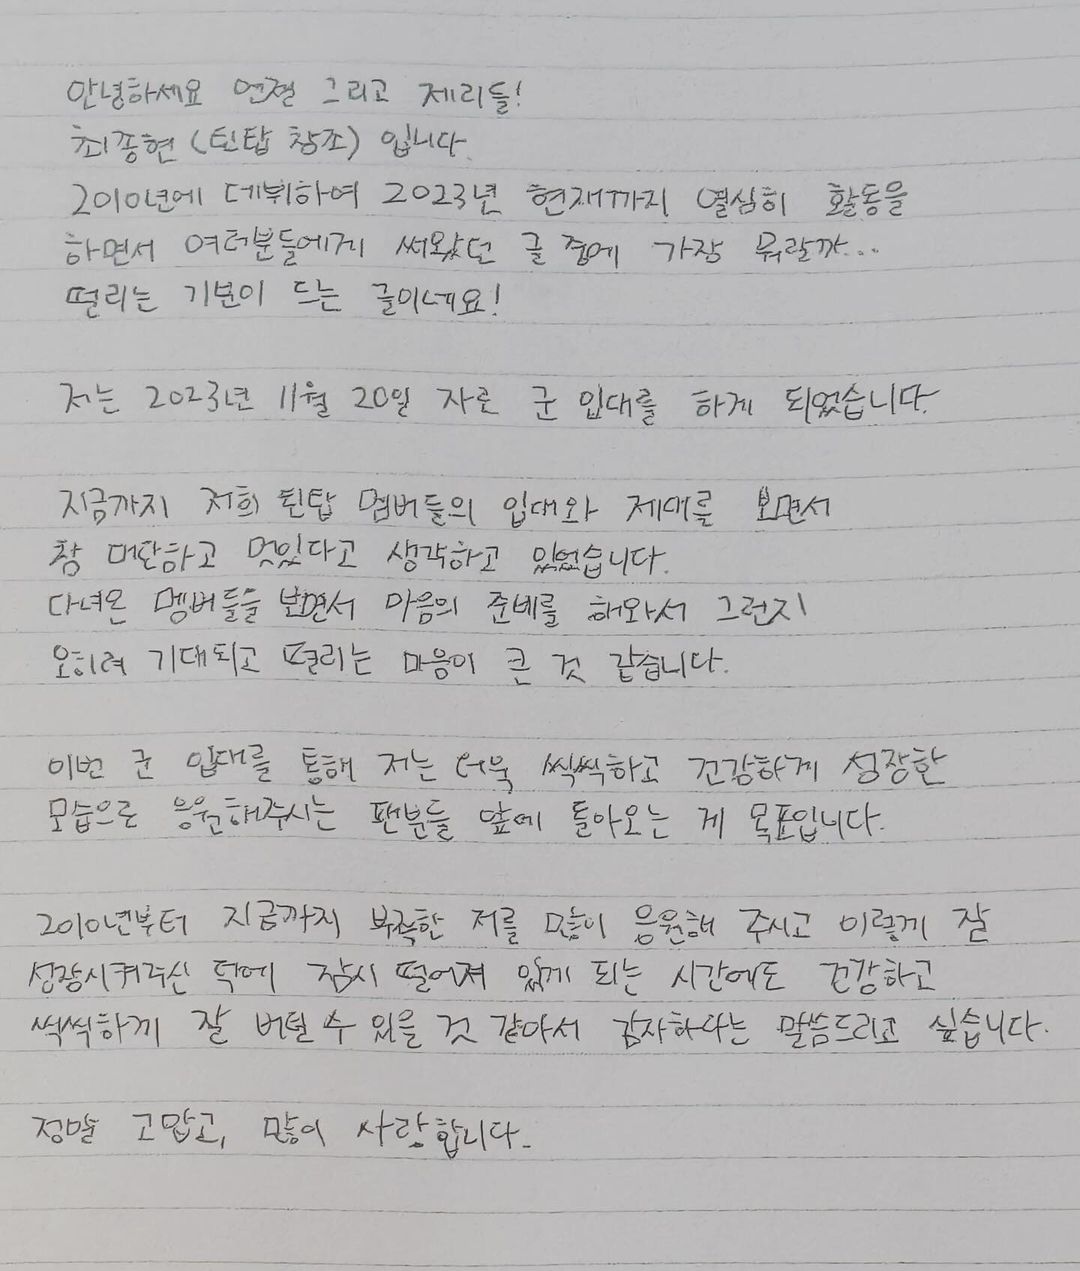 안녕하세요 언젤 그리고 제리들!
최종현 (틴탑 창조) 입니다.
2010년에 데뷔하여 2023년 현재까지 열심히 활동을
하면서 여러분들에게 써왔던 글 중에 가장 뭐랄까...
떨리는 기분이 드는 글이네요!
저는 2023년 11월 20일 자로 군 입대를 하게 되었습니다.
지금까지 저희 틴탑 멤버들의 입대와 제대를 보면서
참 대단하고 멋있다고 생각하고 있었습니다.
다녀온 멤버들을 보면서 마음의 준비를 해와서 그런지
오히려 기대되고 떨리는 마음이 큰 것 같습니다.
이번 군 입대를 통해 저는 더욱 씩씩하고 건강하게 성장한
모습으로 응원해주시는 팬분들 앞에 돌아오는 게 목표입니다.
2010년부터 지금까지 부족한 저를 많이 응원해 주시고 이렇게 잘
성장시켜주신 덕에 잠시 떨어져 있게 되는 시간에도 건강하고
씩씩하게 잘 버틸 수 있을 것 같아서 감사하다는 말씀드리고 싶습니다.
정말 고맙고, 많이 사랑합니다.